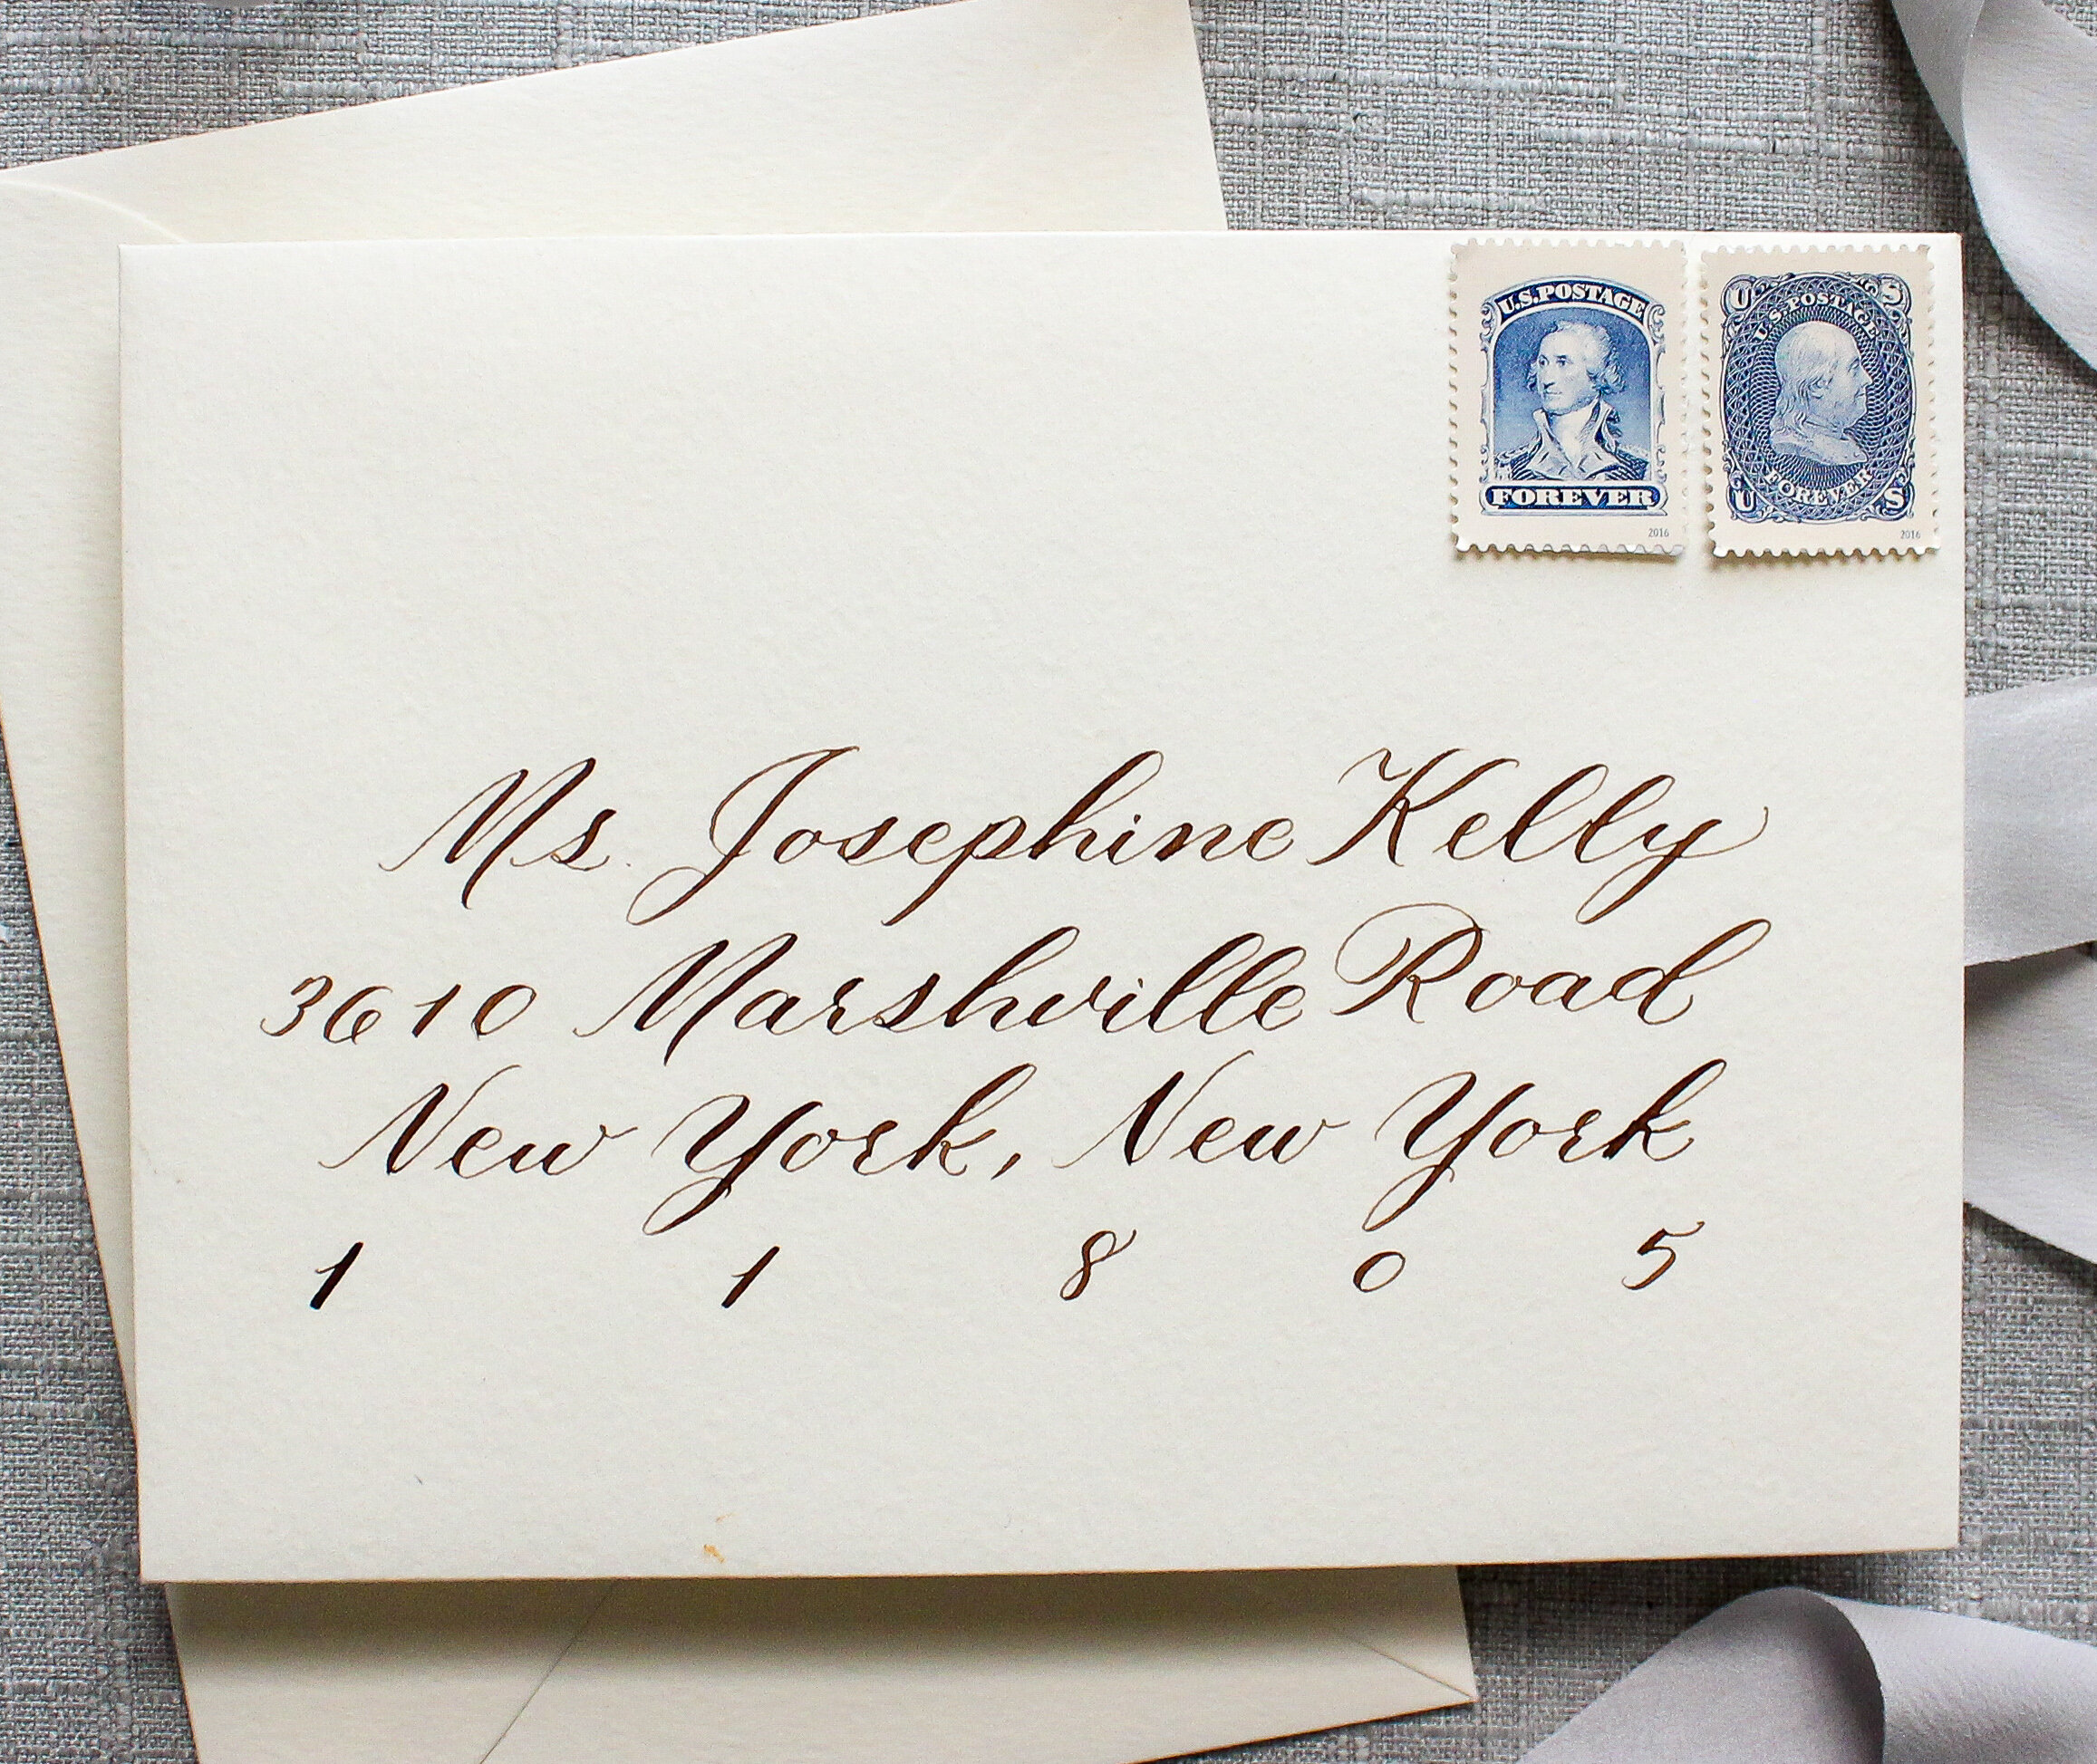 U.S. POSTAGE
FOREVER
2016
U S
U.S. POSTAGE
FOREVER
U S
2016
Ms. Josephine Kelly
3610 Marshville Road
New York, New York
1 1 8 0 5